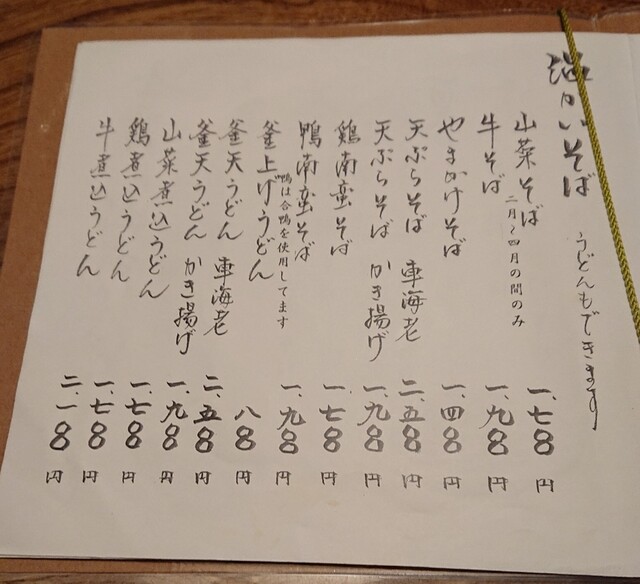 温かいそば うどんもできます
山菜そば 二月〜四月の間のみ 一、七〇〇円
牛そば 一、九〇〇円
やまかけそば 一、四〇〇円
天ぷらそば 車海老 二、五〇〇円
天ぷらそば かき揚げ 一、九〇〇円
鶏南蛮そば 一、七〇〇円
鴨南蛮そば 一、九〇〇円
鴨は合鴨を使用してます
釜上げうどん 八〇〇円
釜天うどん 車海老 二、五〇〇円
釜天うどん かき揚げ 一、九〇〇円
山菜煮込うどん 一、七〇〇円
鶏煮込うどん 一、七〇〇円
牛煮込うどん 二、一〇〇円